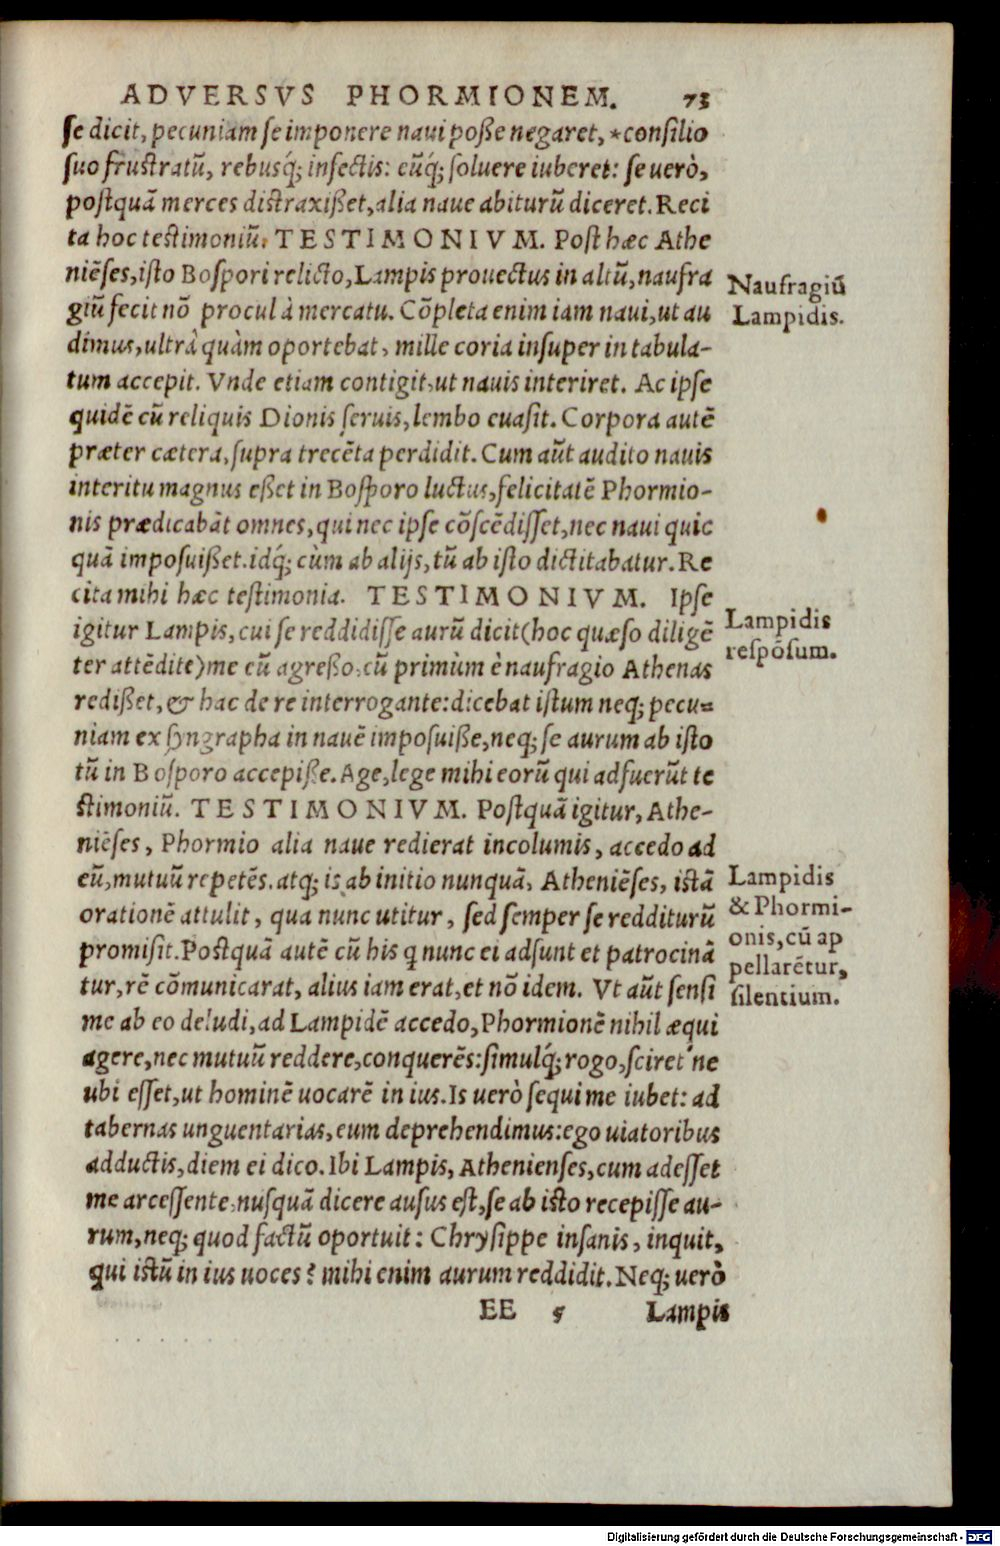 ADVERSVS PHORMIONEM. 73
se dicit, pecuniam se imponere naui poße negaret, *consilio
suo frustratũ, rebusq́; infectis: eũq́; soluere iuberet: se uerò,
postquã merces distraxißet, alia naue abiturũ diceret. Reci
ta hoc testimoniũ. TESTIMONIVM. Post hæc Athe
niẽses, isto Bospori relicto, Lampis prouectus in altũ, naufra
giũ fecit nõ procul à mercatu. Cõpleta enim iam naui, ut au
dimus, ultrà quàm oportebat, mille coria insuper in tabula-
tum accepit. Vnde etiam contigit, ut nauis interiret. Ac ipse
quidẽ cũ reliquis Dionis seruis, lembo euasit. Corpora autẽ
præter cætera, supra trecẽta perdidit. Cum aũt audito nauis
interitu magnus eßet in Bosporo luctus, felicitatẽ Phormio-
nis prædicabãt omnes, qui nec ipse cõscẽdisset, nec naui quic
quã imposuißet. idq́; cùm ab alijs, tũ ab isto dictitabatur. Re
cita mihi hæc testimonia. TESTIMONIVM. Ipse
igitur Lampis, cui se reddidisse aurũ dicit (hoc quæso diligẽ
ter attẽdite) me eũ agreßo, cũ primùm è naufragio Athenas
redißet, & hac de re interrogante: dicebat istum neq; pecu=
niam ex syngrapha in nauẽ imposuiße, neq; se aurum ab isto
tũ in Bosporo accepiße. Age, lege mihi eorũ qui adfuerũt te
stimoniũ. TESTIMONIVM. Postquã igitur, Athe-
niẽses, Phormio alia naue redierat incolumis, accedo ad
eũ, mutuũ repetẽs. atq; is ab initio nunquã, Atheniẽses, istã
orationẽ attulit, qua nunc utitur, sed semper se redditurũ
promisit. Postquã autẽ cũ his q nunc ei adsunt et patrocinã
tur, rẽ cõmunicarat, alius iam erat, et nõ idem. Vt aũt sensi
me ab eo deludi, ad Lampidẽ accedo, Phormionẽ nihil æqui
agere, nec mutuũ reddere, conquerẽs: simulq́; rogo, sciret'ne
ubi esset, ut hominẽ uocarẽ in ius. Is uerò sequi me iubet: ad
tabernas unguentarias, eum deprehendimus: ego uiatoribus
adductis, diem ei dico. Ibi Lampis, Athenienses, cum adesset
me arcessente, nusquã dicere ausus est, se ab isto recepisse au-
rum, neq; quod factũ oportuit: Chrysippe insanis, inquit,
qui istũ in ius uoces? mihi enim aurum reddidit. Neq; uerò
EE 5 Lampis
Naufragiũ
Lampidis.
Lampidis
respõsum.
Lampidis
& Phormi-
onis, cũ ap
pellarẽtur,
silentium.
Digitalisierung gefördert durch die Deutsche Forschungsgemeinschaft - DFG